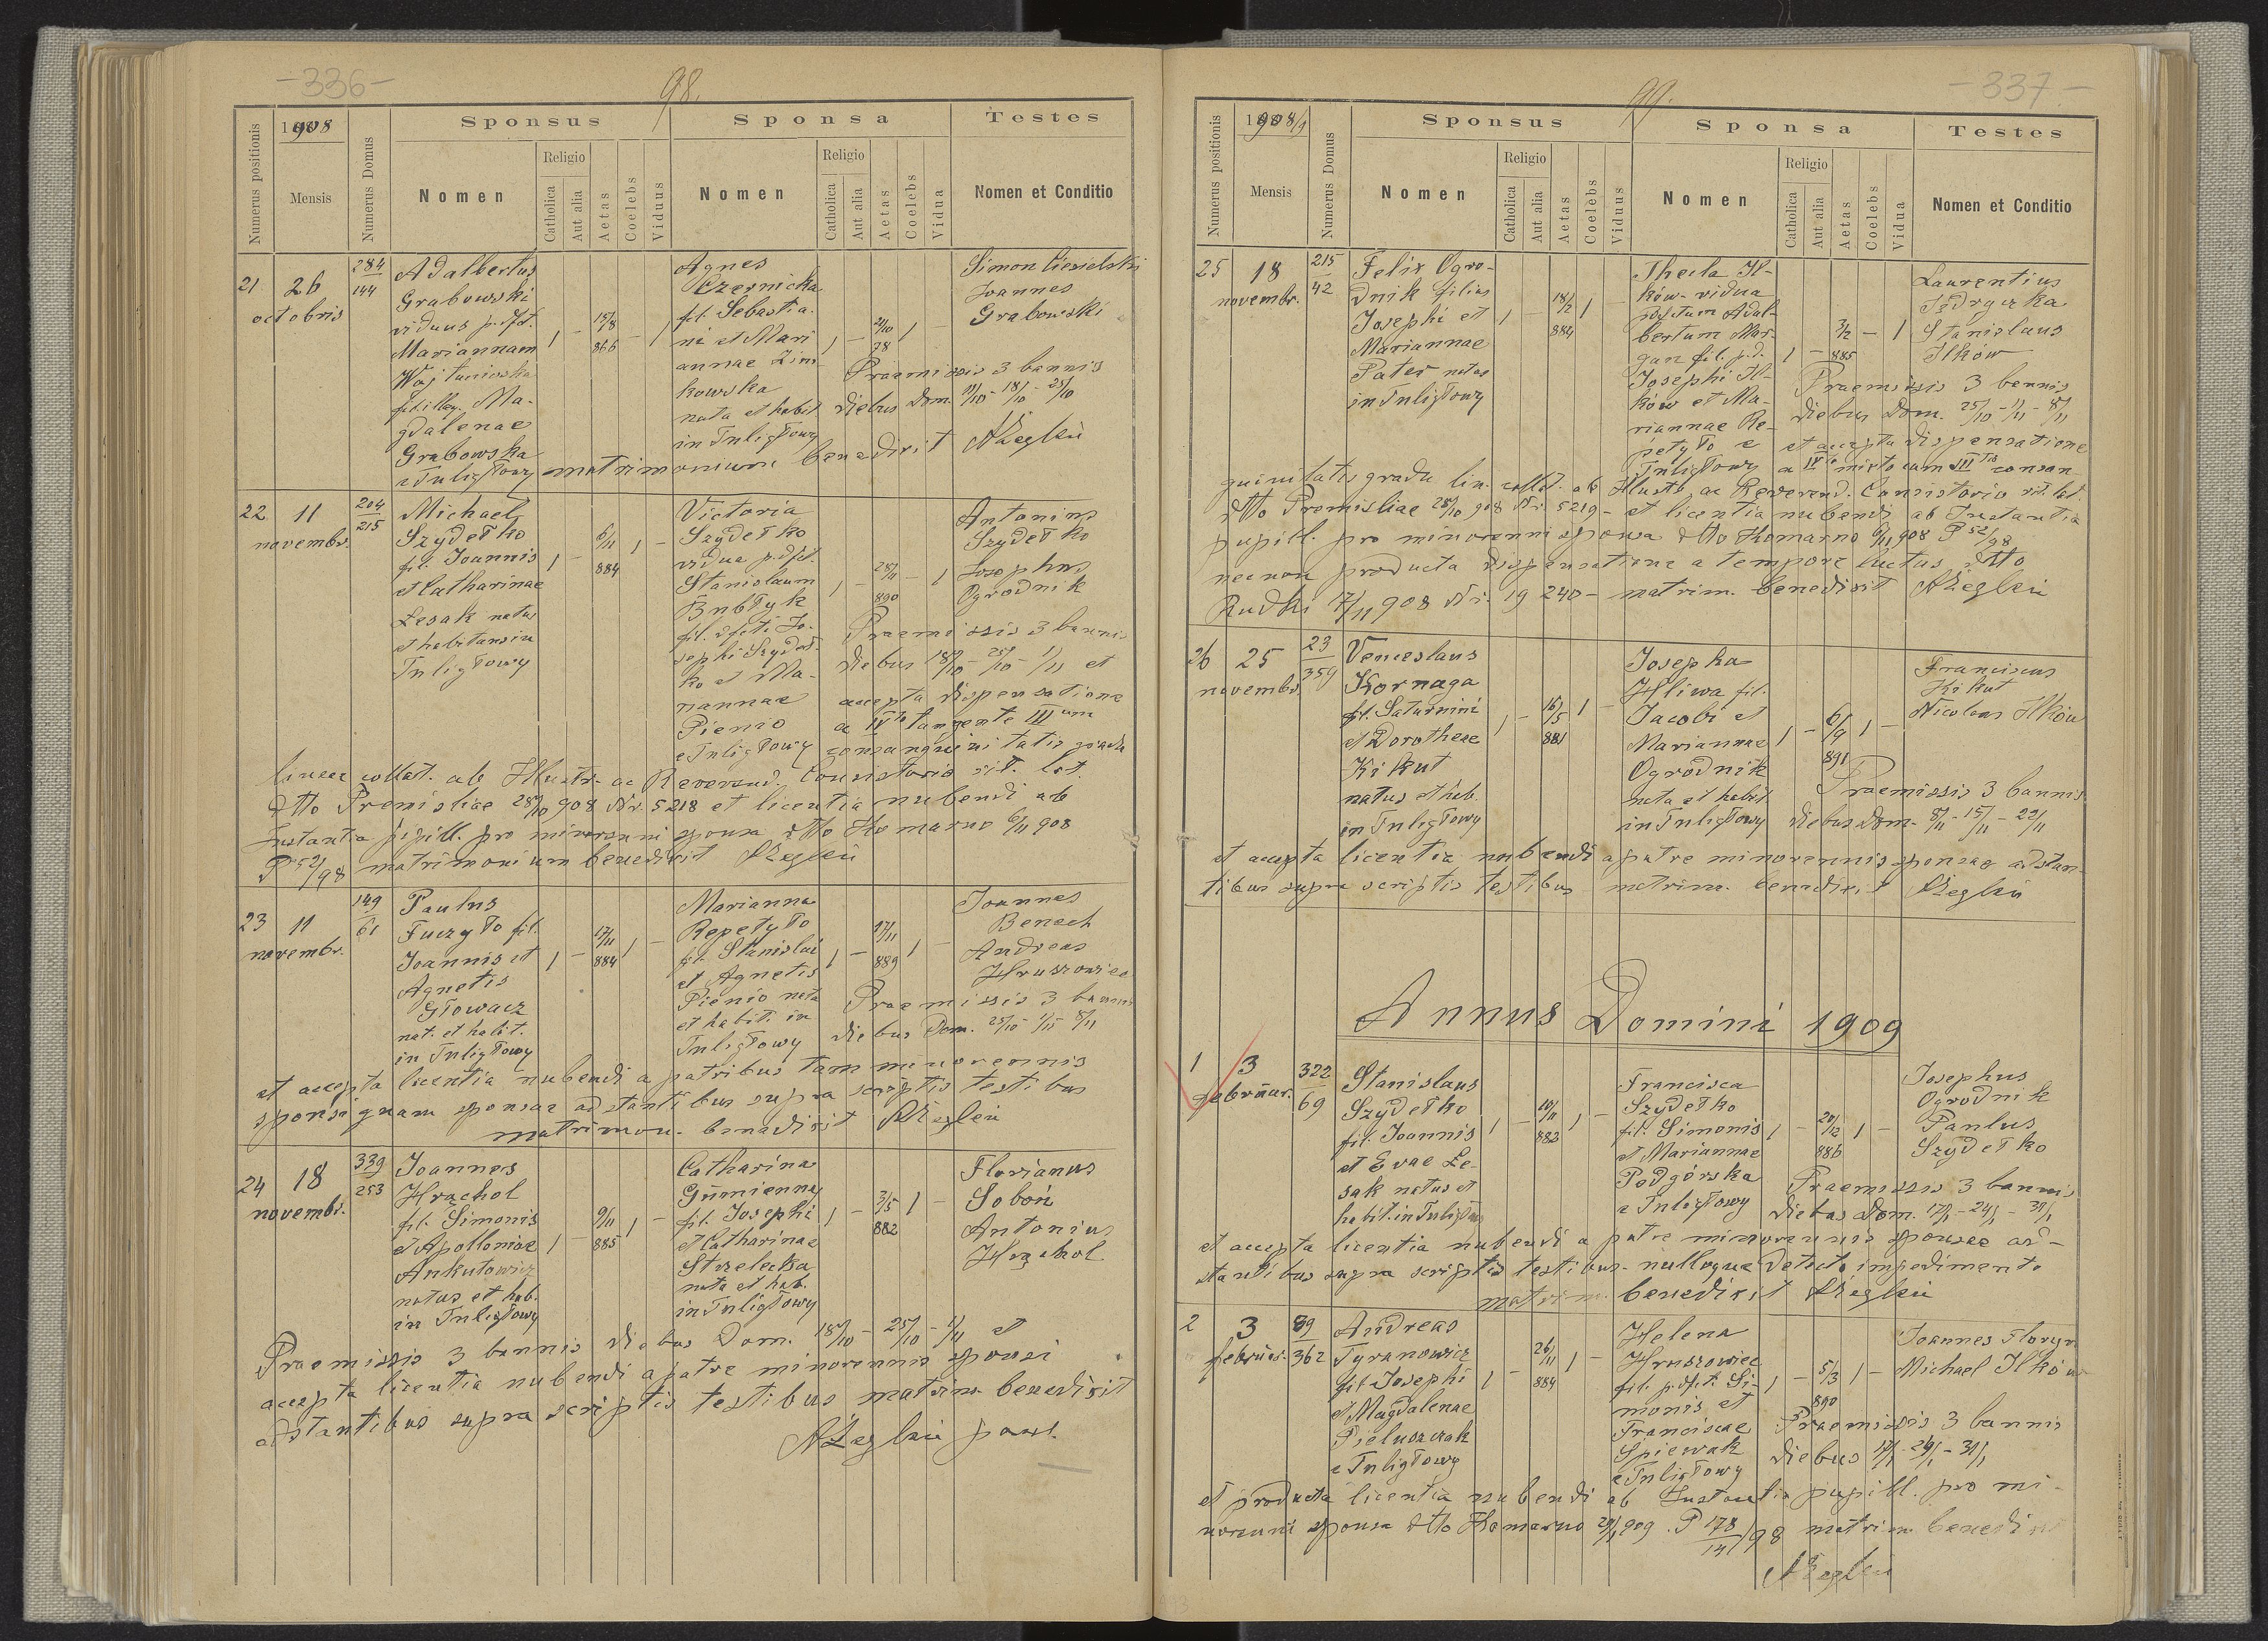 -336-
98.
Numerus positionis
1908
Mensis
Numerus Domus
Sponsus
Nomen
Religio
Catholica
Aut alia
Aetas
Coelebs
Viduus
Sponsa
Nomen
Religio
Catholica
Aut alia
Aetas
Coelebs
Vidua
Testes
Nomen et Conditio
21
26
octobris
284
144
Adalbertus
Grabowski
viduus p. dfct.
Mariannam
fil. illeg. Ma-
gdalenae
Grabowska
e Tuligłowy
1 - 15/8 866 - 1
Agnes
Czernicka
fil. Sebastia-
ni et Mari
annae Zim
kowska
nata et habit.
in Tuligłowy
1 - 21/10 78 1 -
Simon Ciesielski
Joannes
Grabowski
Praemissis 3 bannis
diebus Dom. 11/10 - 18/10 - 25/10
matrimonium benedixit AŻeglin
22
11
novembr.
204
215
Michael
Szydełko
fil. Joannis
et Catharinae
Lesak natus
et habitans in
Tuligłowy
1 - 6/11 884 1 -
Victoria
Szydełko
vidua p. dfct.
Stanislaum
Bubłyk
fil. dfcti Jo-
sephi Szydeł-
ko et Ma-
riannae
Pienio
e Tuligłowy
1 - 28/11 890 - 1
Antonius
Szydełko
Josephus
Ogrodnik
Praemissis 3 bannis
diebus 18/10 - 25/10 - 1/11 et
accepta dispensatione
a IVto tangente IIIum
consanguinitatis gradu
lineae collat. ab Illustr. ac Reverend. Consistorio rit. lat.
dtto Premisliae 28/10 908 Nr. 5218 et licentia nubendi ab
Instantia pupill. pro minorenni sponsa dtto Komarno 6/11 908
P 52/98 matrimonium benedixit AŻeglin
23
11
novembr.
149
61
Paulus
Fuczyło fil.
Joannis et
Agnetis
Głowacz
nat. et habit.
in Tuligłowy
1 - 17/11 884 1 -
Marianna
Repetyło
fil. Stanislai
et Agnetis
Pienio nata
et habit. in
Tuligłowy
1 - 17/11 889 1 -
Joannes
Benech
Andreas
Hruszowiec
Praemissis 3 bannis
diebus Dom. 25/10 - 1/11 8/11
et accepta licentia nubendi a patribus tam minorennis
sponsi quam sponsae adstantibus supra scriptis testibus
matrimon. benedixit AŻeglin
24
18
novembr.
339
253
Joannes
Hrachol
fil. Simonis
et Apolloniae
Ankutowicz
natus et hab.
in Tuligłowy
1 - 9/11 885 1 -
Catharina
Gumienny
fil. Josephi
et Catharinae
Strzelecka
nata et hab.
in Tuligłowy
1 - 3/5 882 1 -
Florianus
Soboń
Antonius
Hrachol
Praemissis 3 bannis diebus Dom. 18/10 - 25/10 - 1/11 et
accepta licentia nubendi a patre minorennis sponsi
adstantibus supra scriptis testibus matrim. benedixit
AŻeglin
-337-
99.
Numerus positionis
1908/9
Mensis
Numerus Domus
Sponsus
Nomen
Religio
Catholica
Aut alia
Aetas
Coelebs
Viduus
Sponsa
Nomen
Religio
Catholica
Aut alia
Aetas
Coelebs
Vidua
Testes
Nomen et Conditio
25
18
novembr.
215
42
Felix Ogro-
dnik filius
Josephi et
Mariannae
Pater natus
in Tuligłowy
1 - 18/2 884 1 -
Thecla Il-
ków - vidua
p. dfctum Adal-
bertum Mar-
gan fil. p. d.
Josephi Il-
ków et Ma-
riannae Re-
petyło e
Tuligłowy
1 - 3/2 885 - 1
Laurentius
Stanislaus
Ilków
Praemissis 3 bannis
diebus Dom. 25/10 - 1/11 - 8/11
et accepta dispensatione
a IVto mixto cum IIItio consan-
guinitatis gradu lin. collat. ab Illustr. ac Reverend. Consistorio rit. lat.
dtto Premisliae 28/10 908 Nr. 5219 - et licentia nubendi ab Instantia
pupill. pro minorenni sponsa dtto Komarno 6/11 908 P 52/98
necnon producta dispensatione a tempore luctus dtto
Rudki 17/11 908 Nr. 19240 - matrim. benedixit AŻeglin
26
25
novembr.
23
359
Venceslaus
Kornaga
fil. Saturnini
et Dorotheae
Kikut
natus et hab.
in Tuligłowy
1 - 16/5 881 1 -
Josepha
Hliwa fil.
Jacobi et
Mariannae
Ogrodnik
nata et habit.
in Tuligłowy
1 - 6/9 891 1 -
Franciscus
Kikut
Nicolaus Ilków
Praemissis 3 bannis
diebus Dom. 8/11 - 15/11 - 22/11
et accepta licentia nubendi a patre minorennis sponsae adstan-
tibus supra scriptis testibus matrim. benedixit AŻeglin
Annus Domini 1909
1
3
februar.
322
69
Stanislaus
Szydełko
fil. Joannis
et Evae Le-
sak natus et
habit. in Tuligłowy
1 - 10/11 882 1 -
Francisca
Szydełko
fil. Simonis
et Mariannae
Podgórska
e Tuligłowy
1 - 20/12 886 1 -
Josephus
Ogrodnik
Paulus
Szydełko
Praemissis 3 bannis
diebus Dom. 17/1 - 24/1 - 31/1
et accepta licentia nubendi a patre minorennis sponsae ad-
stantibus supra scriptis testibus - nulloque detecto impedimento
matrim. benedixit AŻeglin
2
3
februar.
89
362
Andreas
Tyranowicz
fil. Josephi
et Magdalenae
Pieluszczak
e Tuligłowy
1 - 26/11 884 1 -
Helena
Hruszowiec
fil. p. dfcti Si-
monis et
Franciscae
Spiewak
e Tuligłowy
1 - 5/3 890 1 -
Joannes Floryn
Michael Ilków
Praemissis 3 bannis
diebus 17/1 - 24/1 - 31/1
et producta licentia nubendi ab Instantia pupill. pro mi-
norenni sponsa dtto Komarno 29/1 909. P 178/14/98 matrim. benedixit
AŻeglin